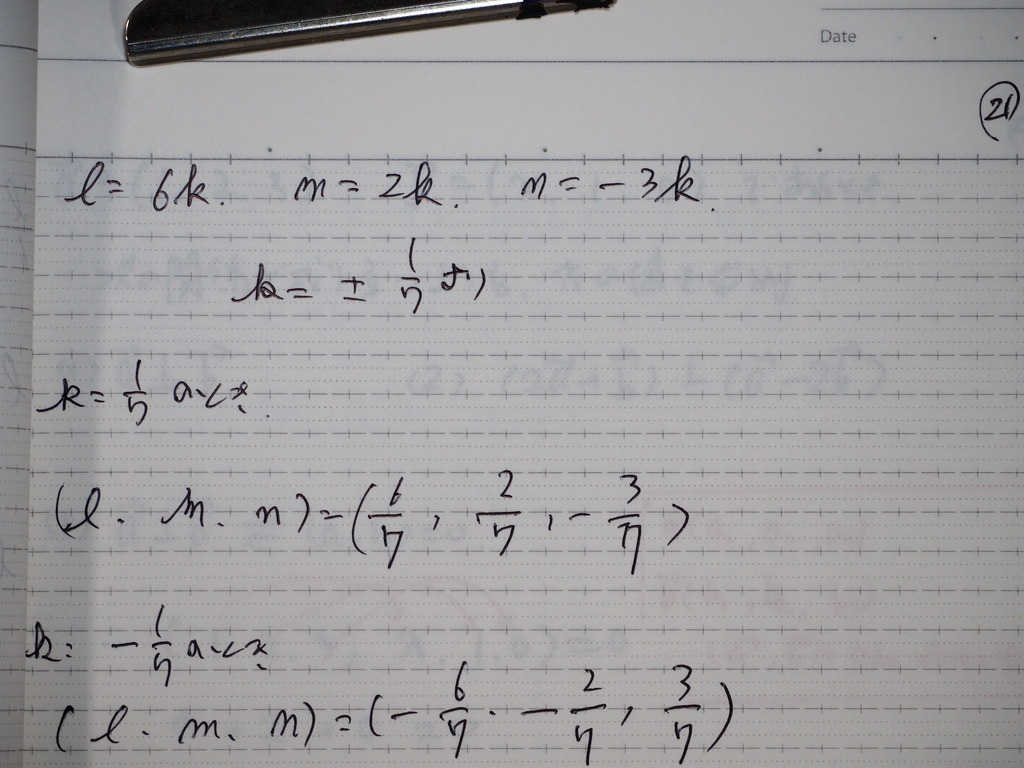 Date
21
l = 6k. m = 2k. n = -3k.
k = ± 1/7 より
k = 1/7 のとき.
(l. m. n) = (6/7, 2/7, -3/7)
k = -1/7 のとき
(l. m. n) = (-6/7. -2/7, 3/7)